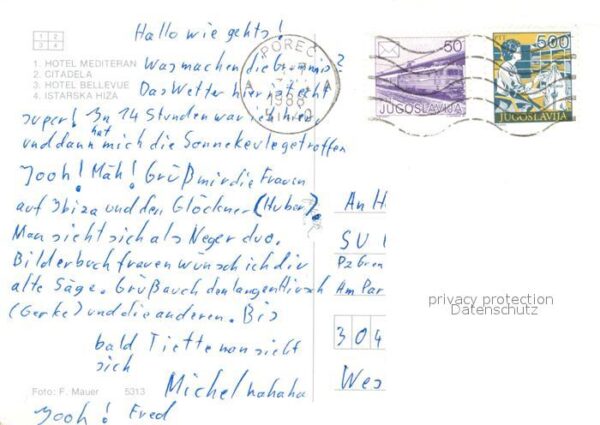 Hallo wie gehts!
1 2
3 4
1. HOTEL MEDITERAN
2. CITADELA
3. HOTEL BELLEVUE
4. ISTARSKA HIŽA
Was machen die Grammis?
Das Wetter hier ist echt
super! In 14 Stunden war ich hier
und dann hat mich die Sonnekeule getroffen
Jooh! Mäh! Grüß mir die Frauen
auf Ibiza und den Glöckner (Huber).
Man sieht sich als Neger duo.
Bilderbuch frauen wünsch ich dir
alte Säge. Grüß auch den langen Hirsch
(Gerke) und die anderen. Bis
bald Tiette man sieht
sich
Michel hahaha
Jooh! Fred
Foto: F. Mauer 5313
POREČ
1988
50
JUGOSLAVIJA
PTT
500
JUGOSLAVIJA
An H
SU
Pz Gren
Am Par
304
Wes
privacy protection
Datenschutz